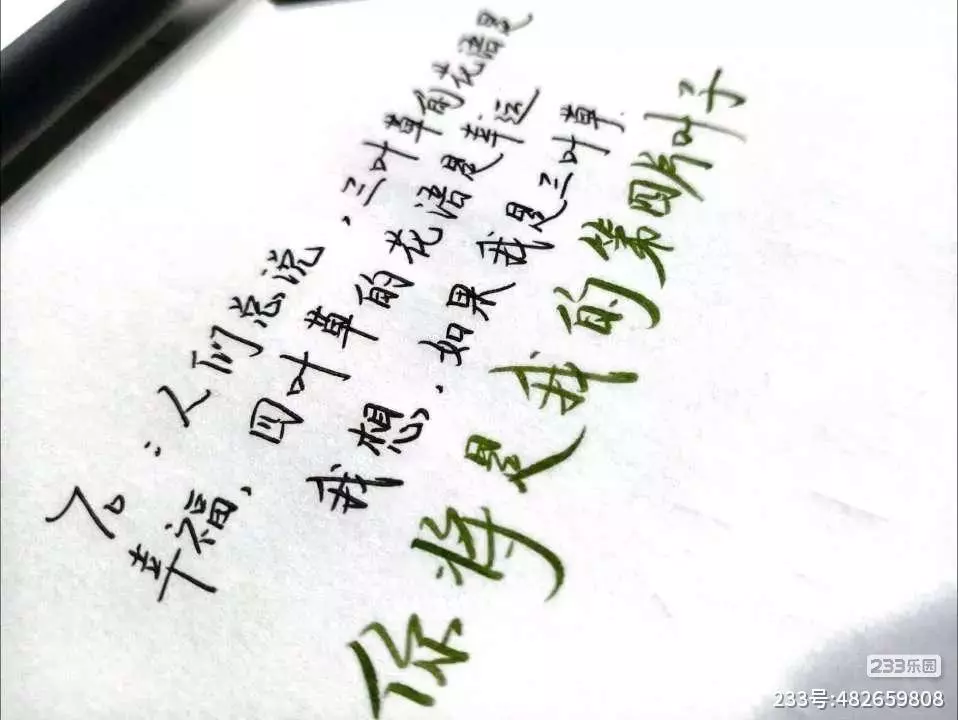 ：人们总说，三叶草的花语是
幸福、四叶草的花语是幸运
我想，如果我是三叶草
你将是我的第四片叶子
233乐园
233号:482659808